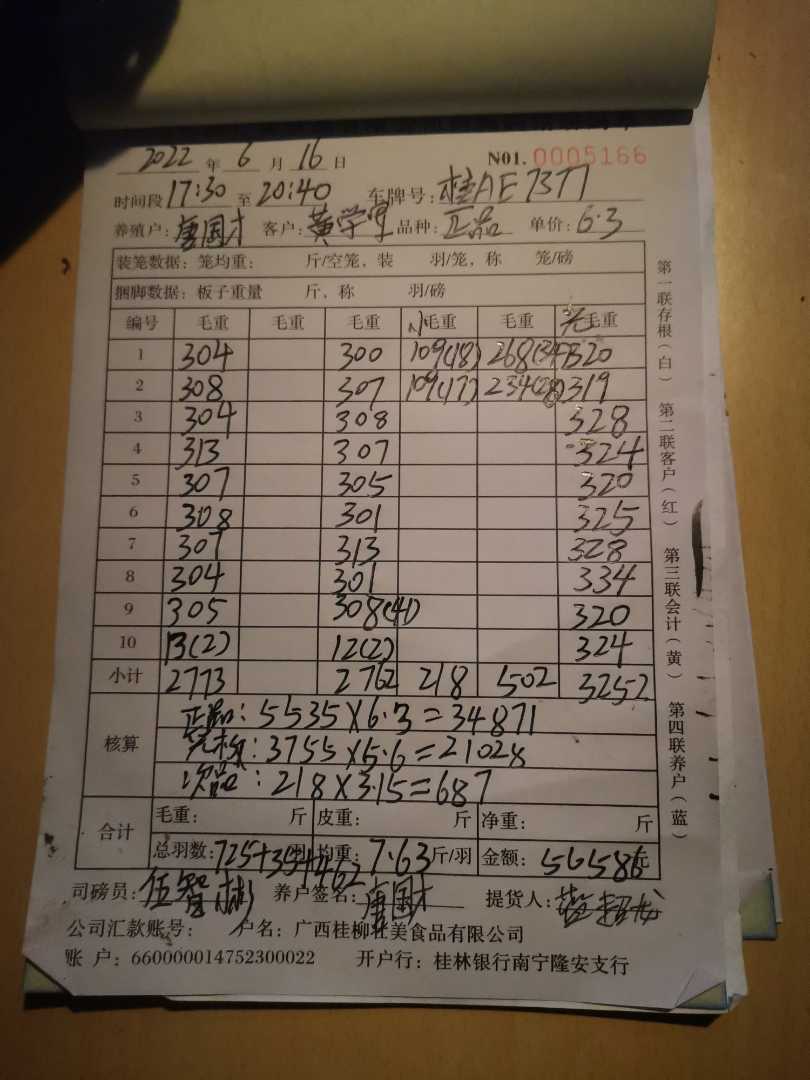 2022 年 6 月 16 日 N01. 0005166
时间段 17:30 至 20:40 车牌号: 桂AE7377
养殖户: 唐国才 客户: 黄学军 品种: 正品 单价: 6.3
装笼数据: 笼均重: 斤/空笼, 装 羽/笼, 称 笼/磅
捆脚数据: 板子重量 斤, 称 羽/磅
编号 毛重 毛重 毛重 小毛重 毛重 毛重
1 304 300 109(18) 268(34) 320
2 308 307 109(17) 234 319
3 304 308 328
4 313 307 324
5 307 305 320
6 308 301 325
7 307 313 328
8 304 301 334
9 305 308(41) 320
10 13(2) 12(2) 324
小计 2773 2762 218 502 3252
核算
正品: 5535×6.3=34871
3755×5.6=21028
次品: 218×3.15=687
合计 毛重: 斤 皮重: 斤 净重: 斤
总羽数: 725+35+462 均重: 7.63 斤/羽 金额: 56586 元
司磅员: 伍智彬 养户签名: 唐国才 提货人:
公司汇款账号: 户名: 广西桂柳壮美食品有限公司
账 户: 660000014752300022 开户行: 桂林银行南宁隆安支行
第一联存根(白) 第二联客户(红) 第三联会计(黄) 第四联养户(蓝)